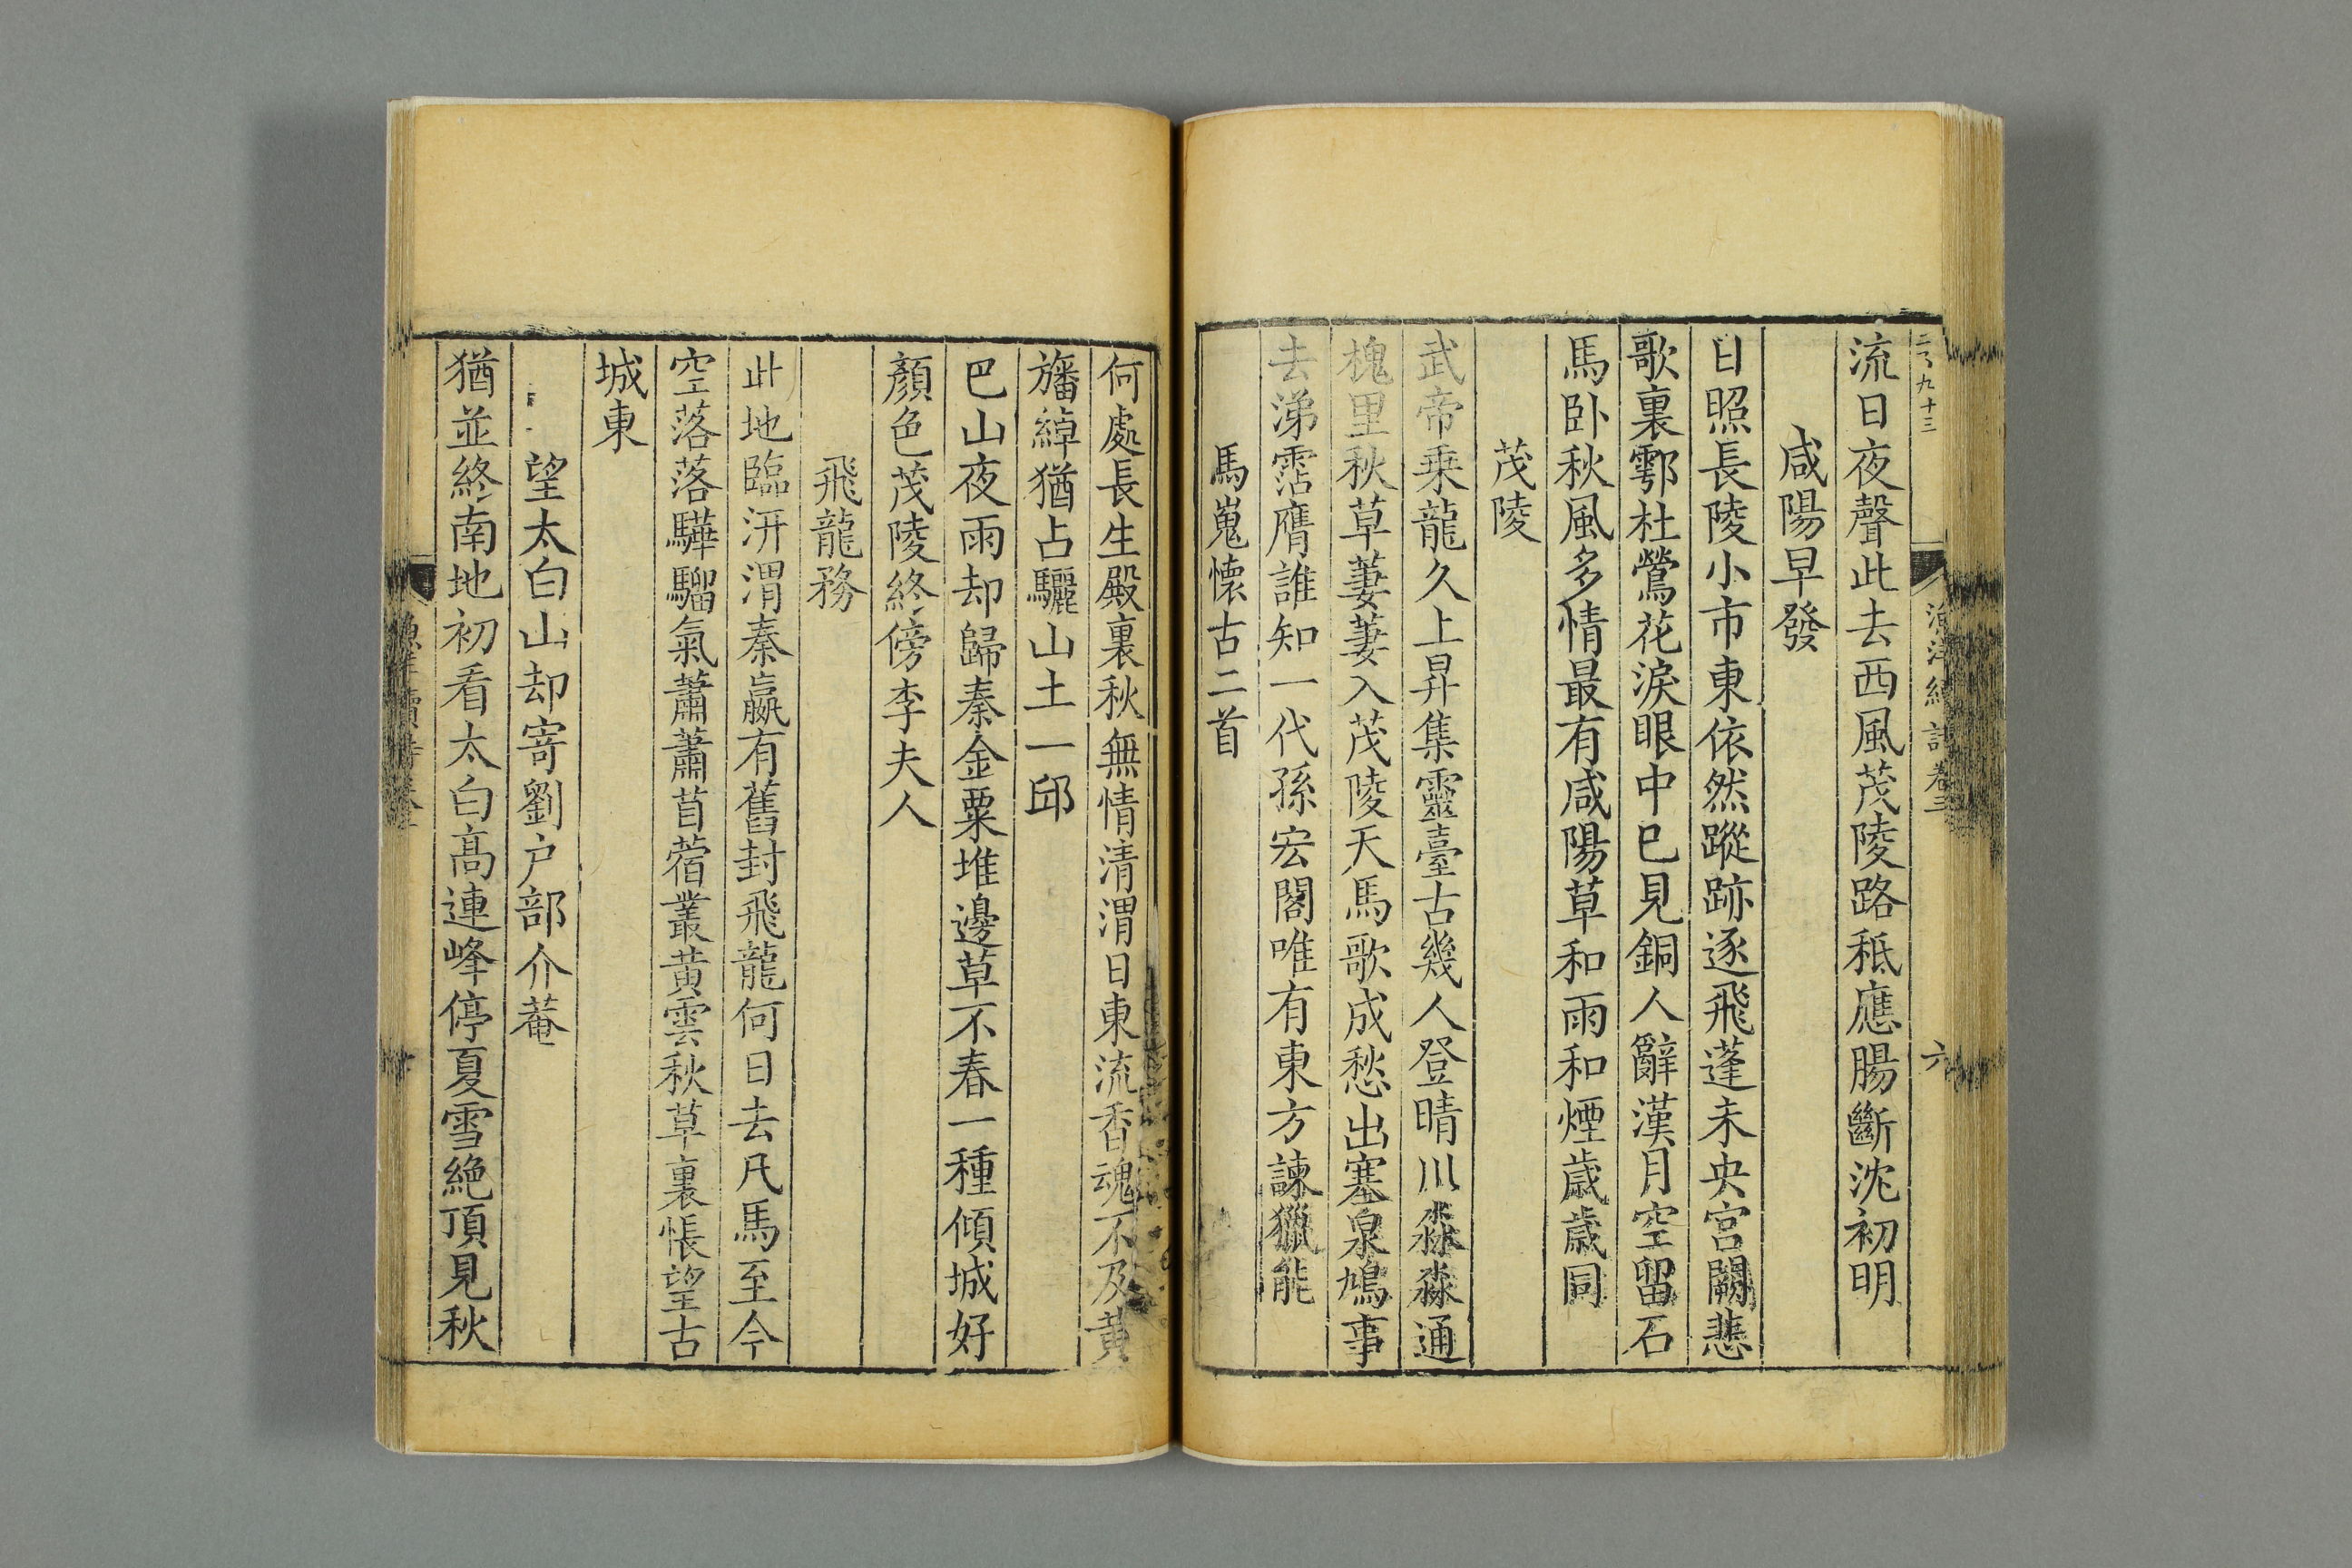 流日夜聲此去西風茂陵路秪應腸斷沈初明
咸陽早發
日照長陵小市東依然蹤跡逐飛蓬未央宮闕悲
歌裏鄠杜鶯花淚眼中已見銅人辭漢月空留石
馬卧秋風多情最有咸陽草和雨和煙歲歲同
茂陵
武帝乗龍久上昇集靈臺古幾人登晴川淼淼通
槐里秋草萋萋入茂陵天馬歌成愁出塞泉鳩事
去涕霑膺誰知一代孫宏閣唯有東方諫獵能
馬嵬懷古二首
何處長生殿裏秋無情清渭日東流香魂不及黄
旛綽猶占驪山土一邱
巴山夜雨却歸秦金粟堆邊草不春一種傾城好
顏色茂陵終傍李夫人
飛龍務
此地臨汧渭秦嬴有舊封飛龍何日去凡馬至今
空落落驊騮氣蕭蕭苜蓿叢黄雲秋草裏悵望古
城東
望太白山却寄劉户部介菴
猶並終南地初看太白高連峰停夏雪絶頂見秋